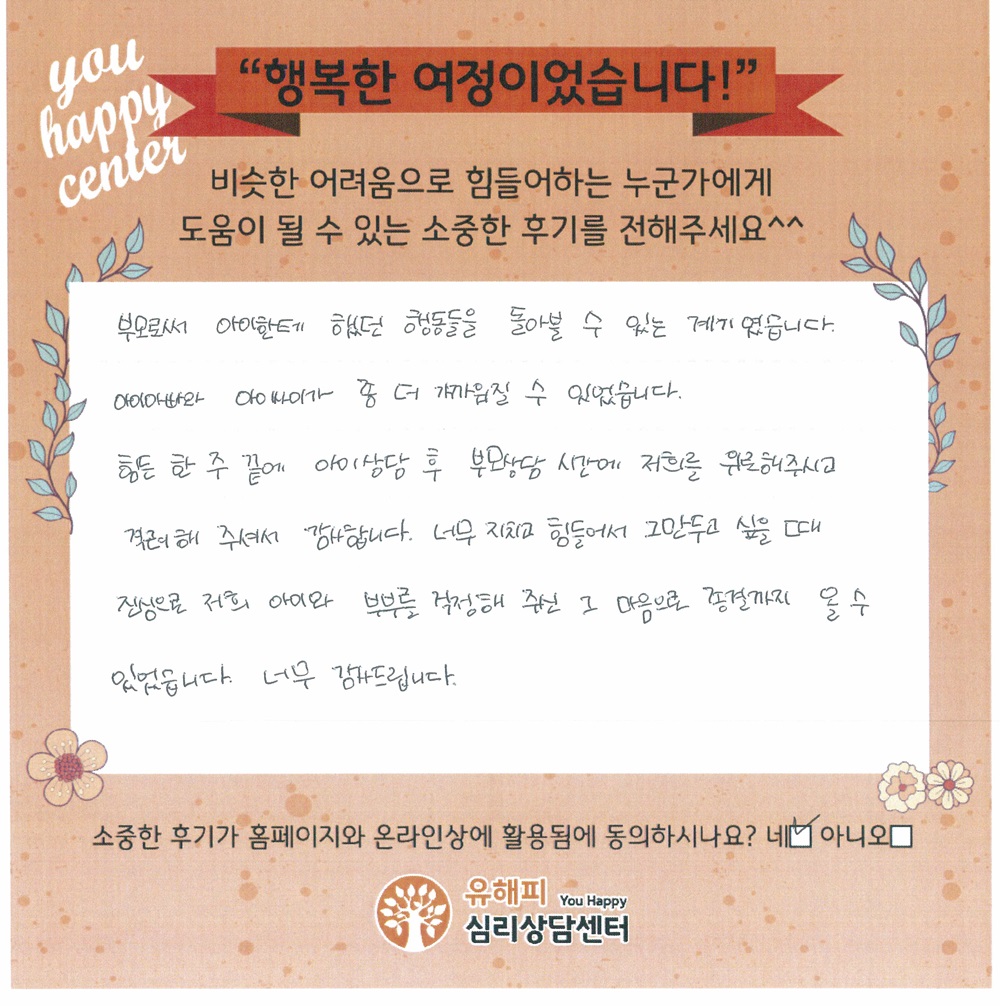 you
happy
center
“행복한 여정이었습니다!”
비슷한 어려움으로 힘들어하는 누군가에게
도움이 될 수 있는 소중한 후기를 전해주세요^^
부모로써 아이한테 했던 행동들을 돌아볼 수 있는 계기였습니다.
아이아빠와 아이 사이가 좀 더 가까워질 수 있었습니다.
힘든 한 주 끝에 아이상담 후 부모상담 시간에 저희를 위로해주시고
격려해 주셔서 감사합니다. 너무 지치고 힘들어서 그만두고 싶을 때
진심으로 저희 아이와 부부를 걱정해 주신 그 마음으로 종결까지 올 수
있었습니다. 너무 감사드립니다.
소중한 후기가 홈페이지와 온라인상에 활용됨에 동의하시나요? 네 아니오
유해피 You Happy
심리상담센터